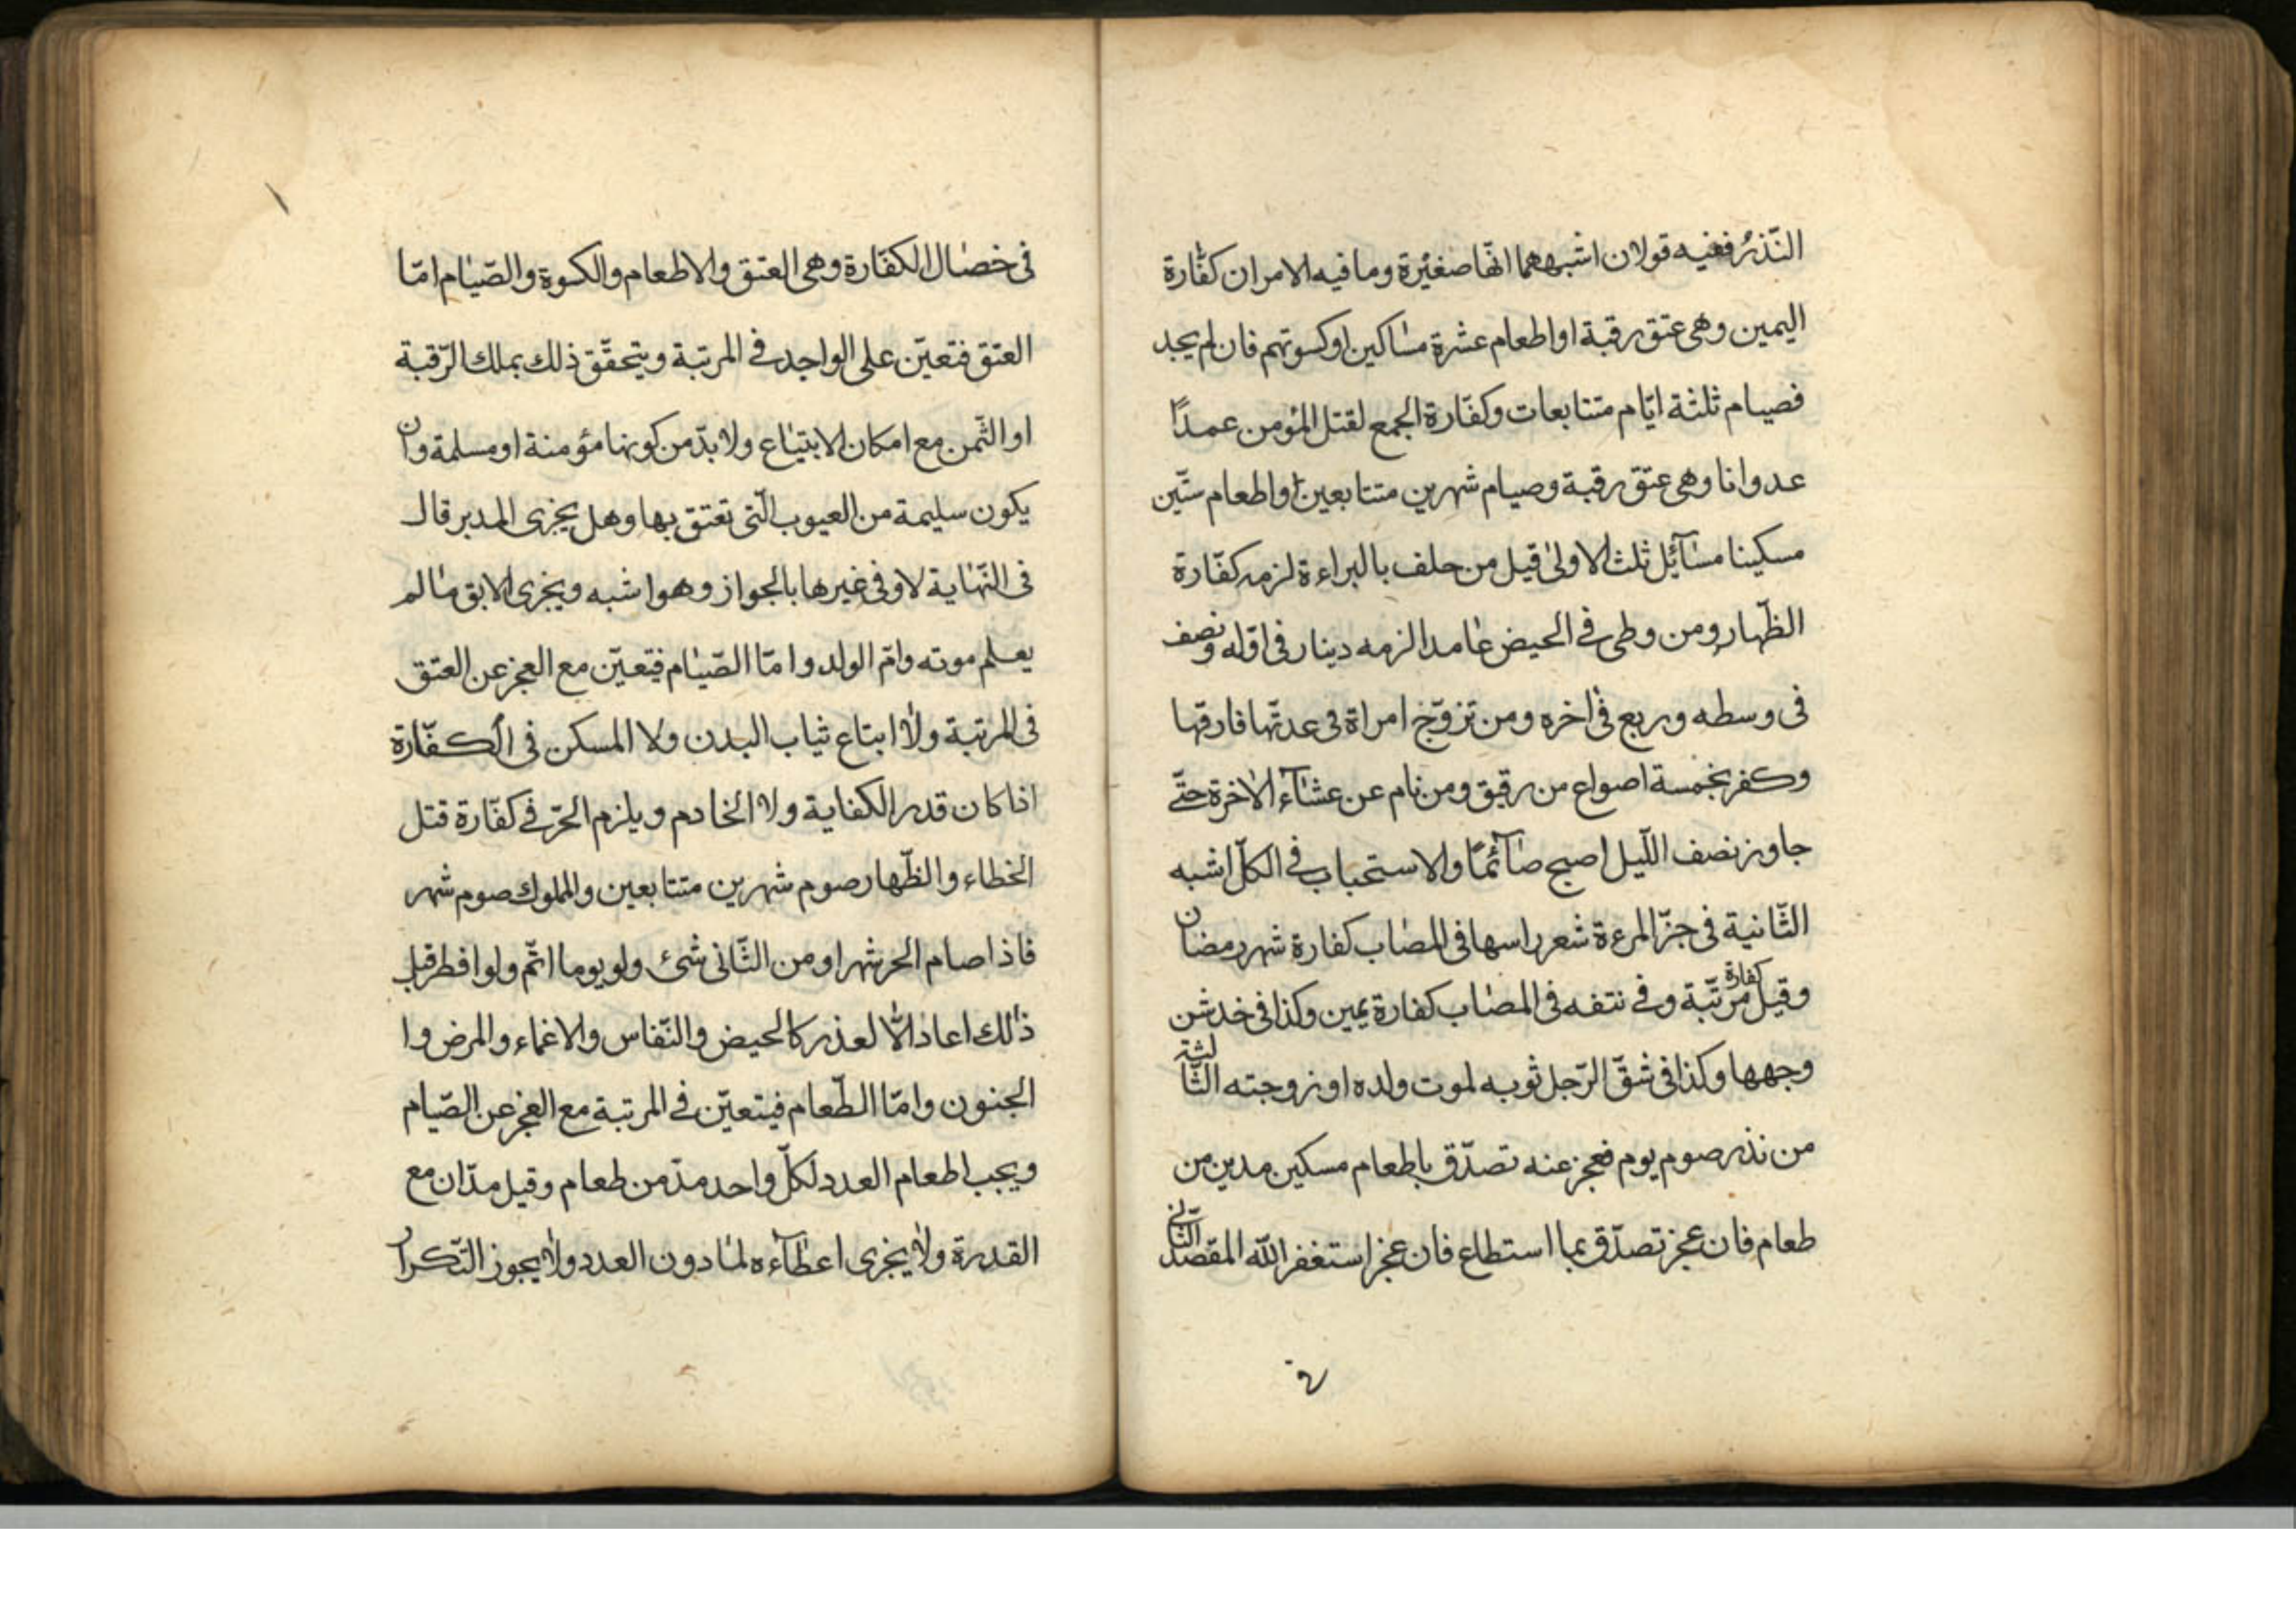 النّذر ففيه قولان اشبههما انّها صغيرة وما فيه الامران كفّارة
اليمين وهى عتق رقبة او اطعام عشرة مساكين او كسوتهم فان لم يجد
فصيام ثلثة ايّام متتابعات وكفّارة الجمع لقتل المؤمن عمدًا
عدوانا وهى عتق رقبة وصيام شهرين متتابعين واطعام ستّين
مسكينا مسآئل ثلث الاولىٰ قيل من حلف بالبراءة لزمه كفّارة
الظّهار ومن وطى فى الحيض عامدا لزمه دينار فى اوّله ونصف
فى وسطه وربع فى اخره ومن تزوّج امراة فى عدتّها فارقها
وكفر بخمسة اصواع من رقيق ومن نام عن عشآء الاخرة حتّى
جاوز نصف اللّيل اصبح صآئمًا والاستحباب فى الكلّ اشبه
الثّانية فى جزّ المرءة شعر راسها فى المصاب كفارة شهر رمضان
وقيل كفارة مرتّبة وفى نتفه فى المصاب كفارة يمين وكذا فى خدش
وجهها وكذا فى شقّ الرّجل ثوبه لموت ولده او زوجته الثّالثة
من نذر صوم يوم فعجز عنه تصدّق باطعام مسكين مدين من
طعام فان عجز تصدّق بما استطاع فان عجز استغفر اللّه المقصد الثّانى
فى
فى خصال الكفّارة وهى العتق والاطعام والكسوة والصّيام امّا
العتق فتعيّن على الواجد فى المرتبة ويتحقّق ذلك بملك الرّقبة
او الثّمن مع امكان الابتياع ولا بدّ من كونها مؤمنة او مسلمة وان
يكون سليمة من العيوب الّتى تعتق بها وهل يجزى المدبر قال
فى النّهاية لا وفى غيرها بالجواز وهو اشبه ويجزى الابق ما لم
يعلم موته وامّ الولد وامّا الصّيام فيتعيّن مع العجز عن العتق
فى المرتبة ولا ابتاع ثياب البدن ولا المسكن فى الكفّارة
اذا كان قدر الكفاية ولا الخادم ويلزم الحرّ فى كفّارة قتل
الخطاء والظّهار صوم شهرين متتابعين والمملوك صوم شهر
فاذا صام الحر شهرا ومن الثّانى شىء ولو يوما اتمّ ولو افطر قبل
ذٰلك اعاد الّا لعذر كالحيض والنّفاس والاغماء والمرض وا
الجنون وامّا الطّعام فيتعيّن فى المرتبة مع العجز عن الصّيام
ويجب اطعام العدد لكلّ واحد مدّ من طعام وقيل مدّان مع
القدرة ولا يجزى اعطآءه لما دون العدد ولا يجوز التّكرار